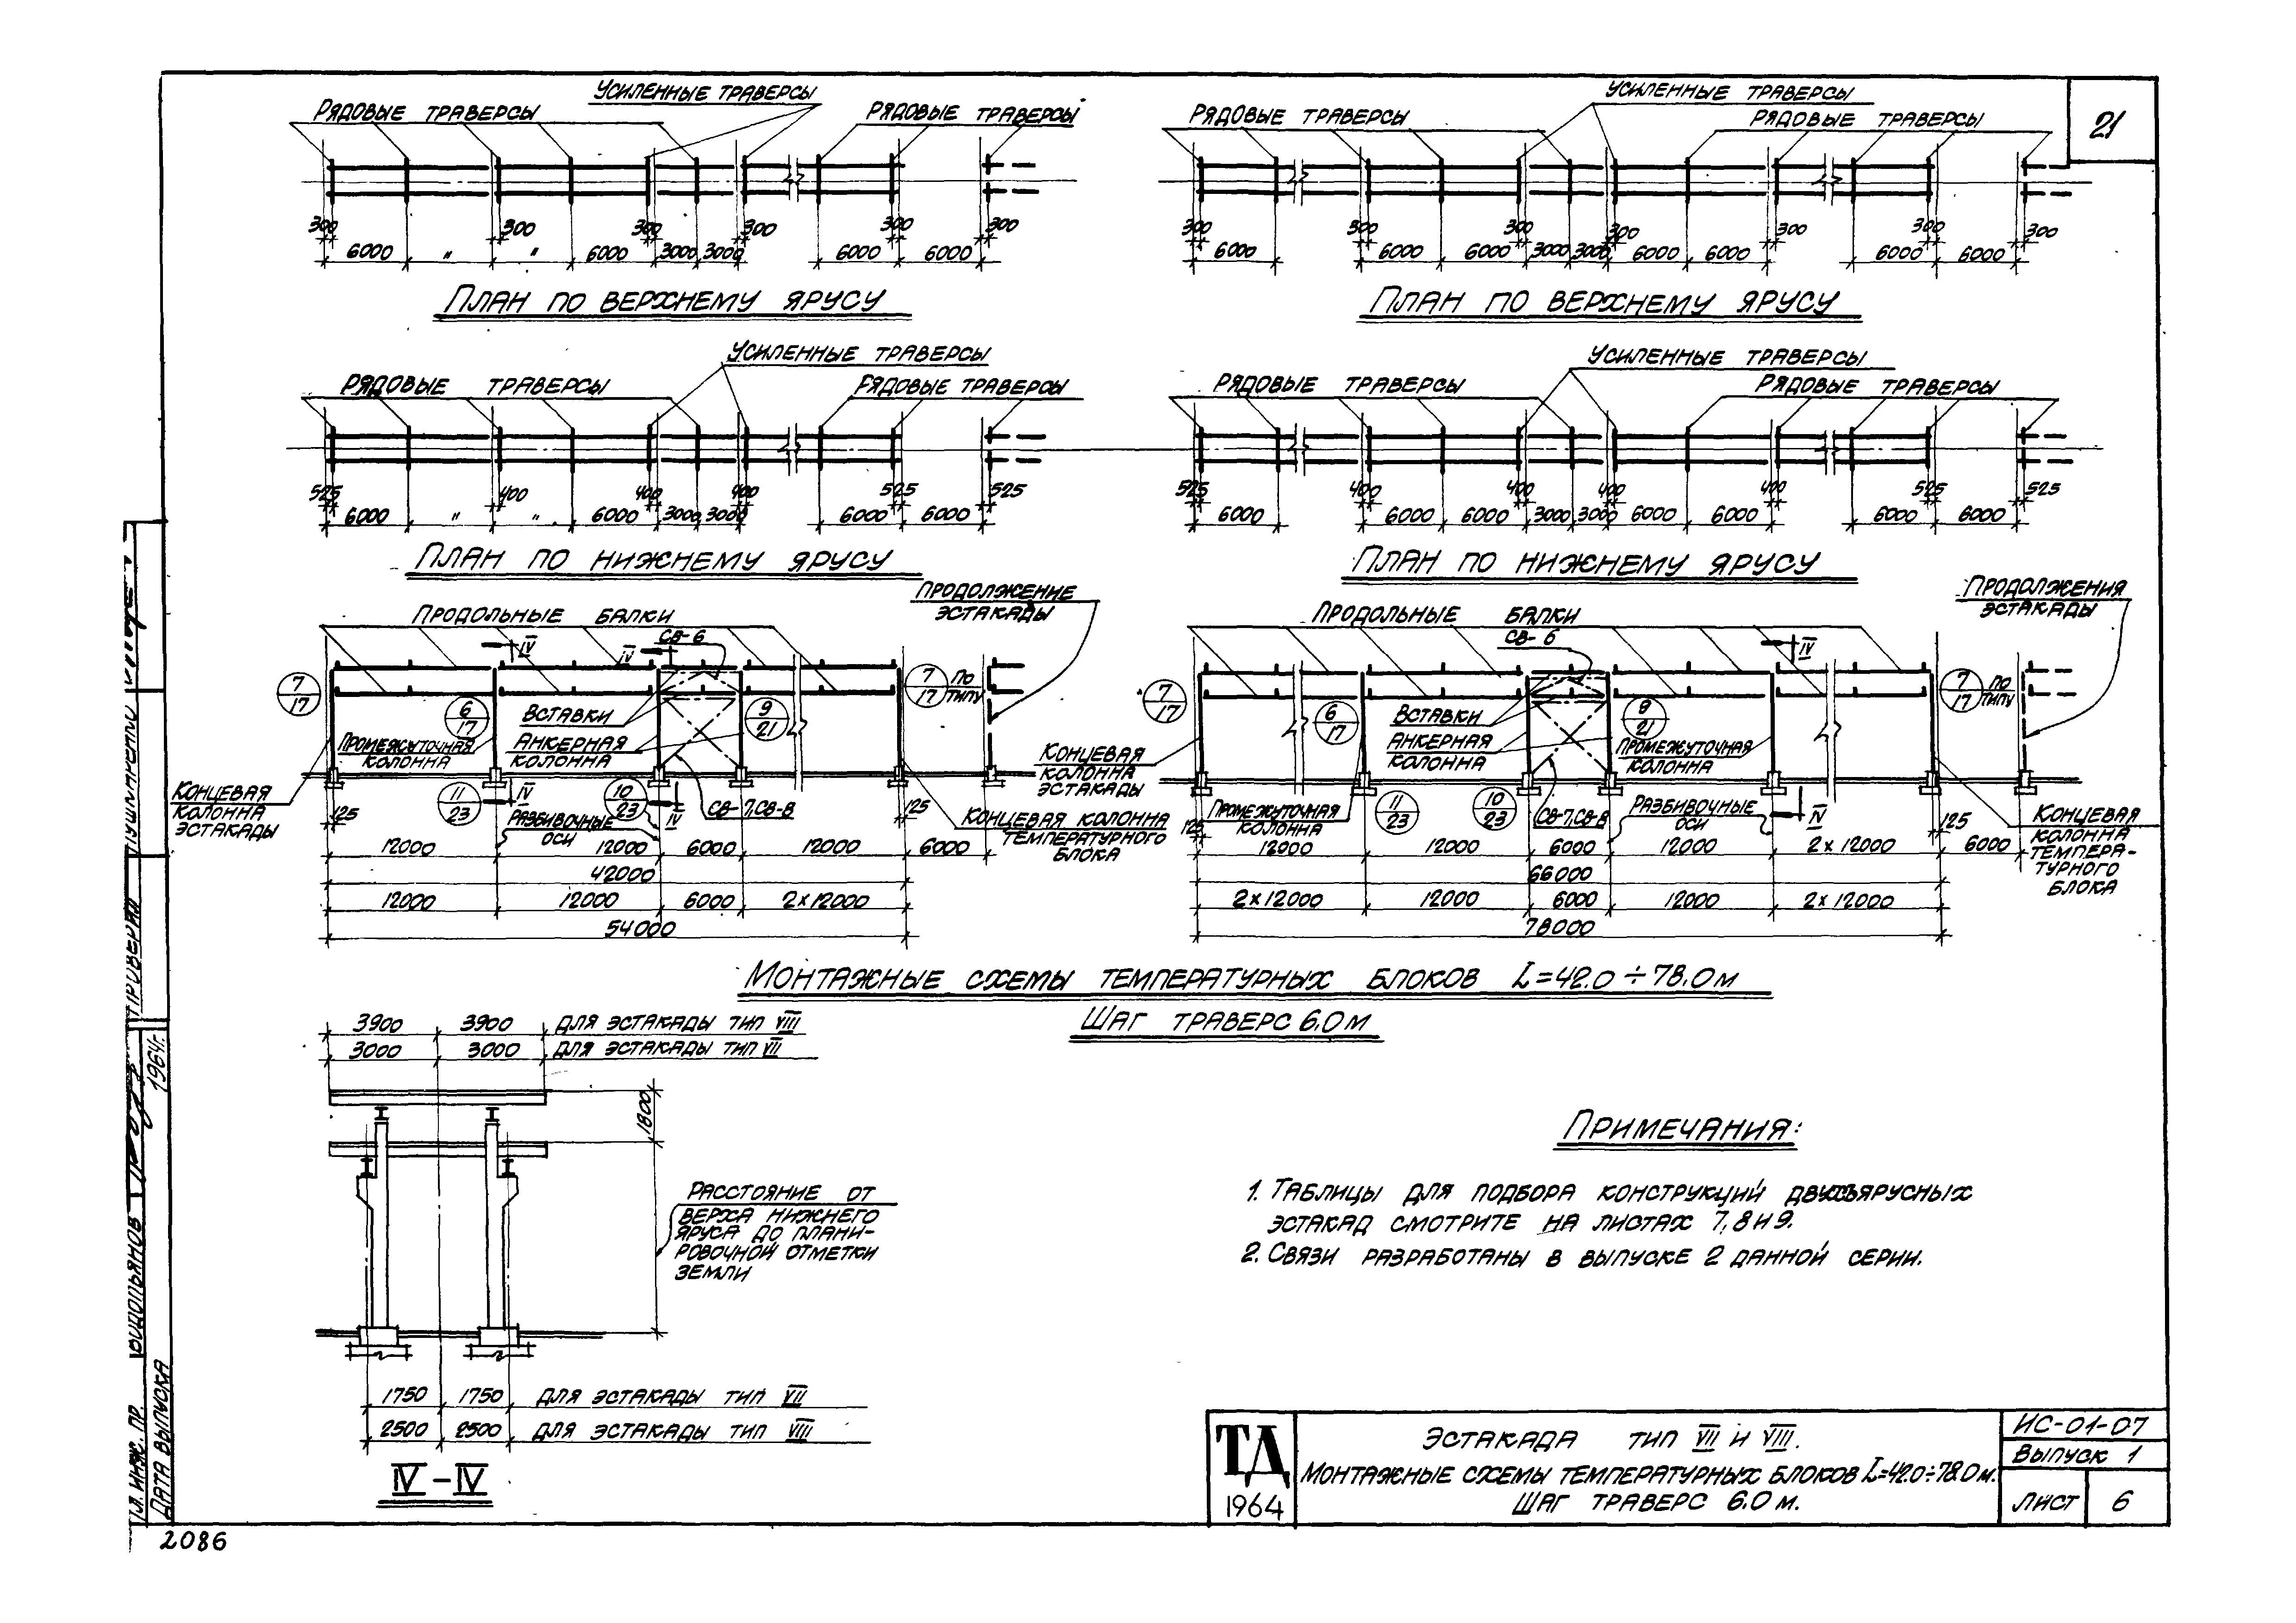 21
Усиленные траверсы
Рядовые траверсы
Рядовые траверсы
300 300 300 300 300 300
6000 " " 6000 3000 3000 6000 6000
План по верхнему ярусу
Усиленные траверсы
Рядовые траверсы
Рядовые траверсы
300 300 300 300 300 300 300
6000 6000 6000 3000 3000 6000 6000 6000 6000
План по верхнему ярусу
Усиленные траверсы
Рядовые траверсы
Рядовые траверсы
525 400 400 400 525 525
6000 " " 6000 3000 3000 6000 6000
План по нижнему ярусу
Усиленные траверсы
Рядовые траверсы
Рядовые траверсы
525 400 400 400 400 525 525
6000 6000 6000 3000 3000 6000 6000 6000 6000
План по нижнему ярусу
Продолжение
эстакады
Продольные балки
СВ-6
IV IV
7
17
6
17
9
21
7
17
по
типу
Вставки
Анкерная
колонна
Промежуточная
колонна
Концевая
колонна
эстакады
11
23
10
23
IV IV
СВ-7, СВ-8
Разбивочные
оси
Концевая колонна
температурного
блока
125 125
12000 12000 6000 12000 6000
42000
12000 12000 6000 2×12000
54000
Продолжения
эстакады
Продольные балки
СВ-6
IV
7
17
6
17
9
21
7
17
по
типу
Вставки
Анкерная
колонна
Промежуточная
колонна
Концевая
колонна
эстакады
Промежуточная
колонна
11
23
10
23
СВ-7, СВ-8
Разбивочные
оси
IV
Концевая
колонна
темпера-
турного
блока
125 125
12000 12000 6000 12000 2×12000 6000
66000
2×12000 12000 6000 12000 2×12000
78000
Монтажные схемы температурных блоков L=42.0÷78.0м
Шаг траверс 6.0м
3900 3900 для эстакады тип VIII
3000 3000 для эстакады тип VII
1800
Расстояние от
верха нижнего
яруса до плани-
ровочной отметки
земли
1750 1750 для эстакады тип VII
2500 2500 для эстакады тип VIII
IV-IV
Примечания:
1. Таблицы для подбора конструкций двухъярусных
эстакад смотрите на листах 7, 8 и 9.
2. Связи разработаны в выпуске 2 данной серии.
ТД
1964
Эстакада тип VII и VIII.
Монтажные схемы температурных блоков L=42.0÷78.0м.
Шаг траверс 6.0м.
ИС-01-07
Выпуск 1
Лист 6
Гл. инж. пр.
Дата выпуска
1964г.
2086